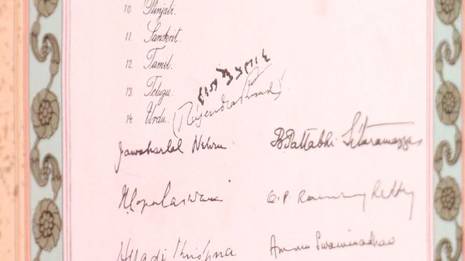 10 Punjabi.
11 Sanskrit.
12 Tamil.
13 Telugu.
14 Urdu.
Rajendra Prasad
Jawaharlal Nehru B Pattabhi Sitaramayya
Gopalaswami O.P. Ramaswamy Reddy
Alladi Krishna Ammu Swaminadhan